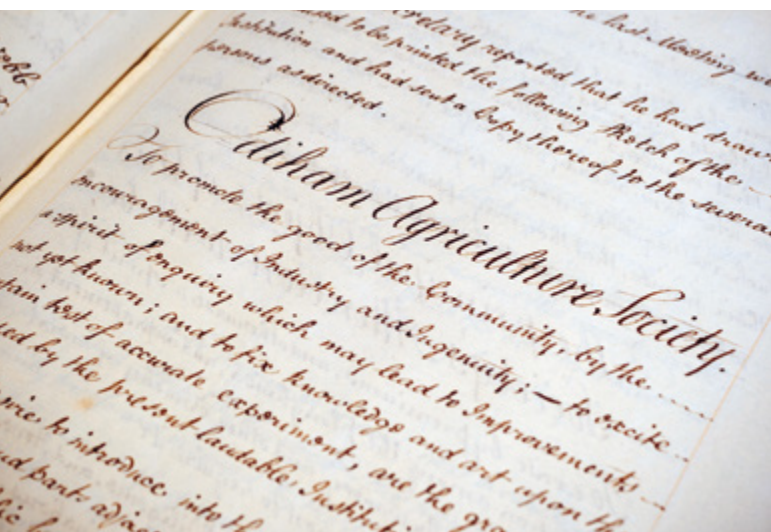 the last Meeting we
cretary reported that he had draw
used to be printed the following Sketch of the
Institution and had sent a Copy thereof to the several
persons as directed.
Odiham Agriculture Society.
To promote the good of the Community, by the
encouragement of Industry and Ingenuity; — to excite
a spirit of enquiry which may lead to Improvements
not yet known; and to fix knowledge and art upon the
test of accurate experiment, are the
by the present laudable Instituti
to introduce into th
parts adja
obb